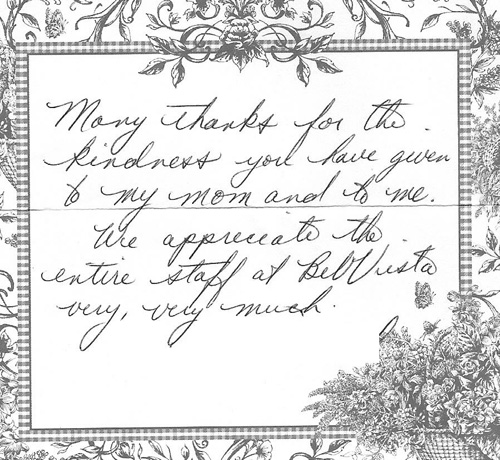 Many thanks for the
kindness you have given
to my mom and to me.
We appreciate the
entire staff at Bel Vista
very, very much.